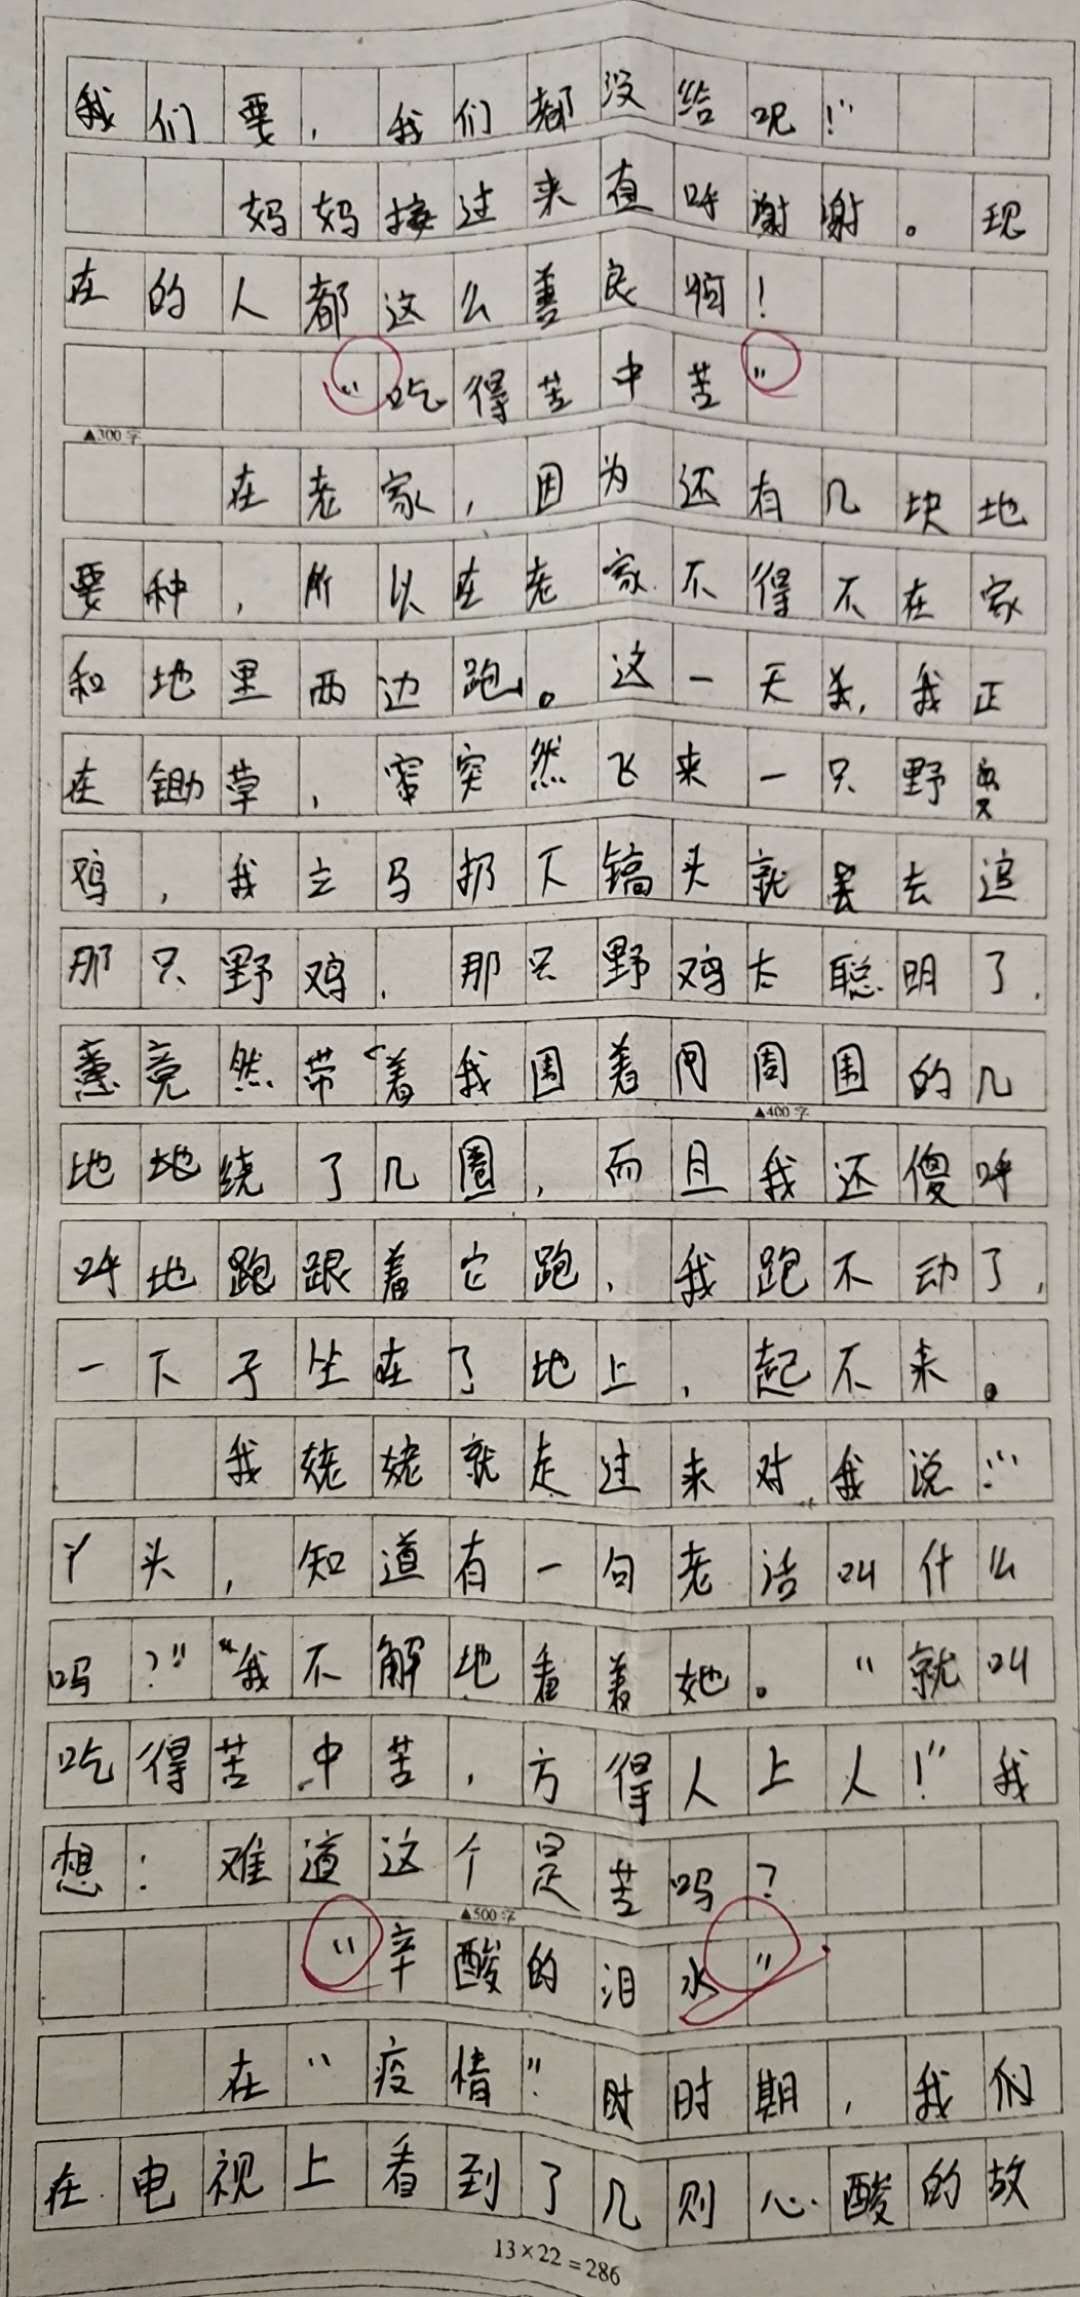 我们要，我们都没给呢！”
妈妈接过来直呼谢谢。现
在的人都这么善良啊！
“吃得苦中苦”
▲300字
在老家，因为还有几块地
要种，所以在老家不得不在家
和地里两边跑。这一天，我正
在锄草，突然飞来一只野
鸡，我立马扔下镐头就去追
那只野鸡，那只野鸡太聪明了，
竟然带着我围着周围的几
▲400字
地地绕了几圈，而且我还傻呼
呼地跑跟着它跑，我跑不动了，
一下子坐在了地上，起不来。
我姥姥就走过来对我说：“
丫头，知道有一句老话叫什么
吗？”“我不解地看着她。“就叫
吃得苦中苦，方得人上人！”我
想：难道这个是苦吗？
▲500字
“辛酸的泪水”
在“疫情”时时期，我们
在电视上看到了几则心酸的故
13×22=286